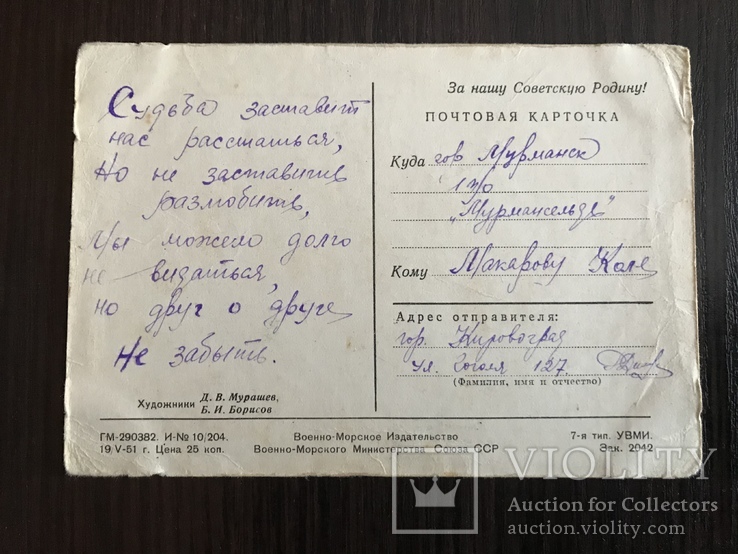 Судьба заставит
нас расстаться,
Но не заставить
разлюбить,
Мы можем долго
не видаться,
но друг о друге
Не забыть.
Художники Д. В. Мурашев,
Б. И. Борисов
За нашу Советскую Родину!
ПОЧТОВАЯ КАРТОЧКА
Куда гор Мурманск
1 п/о
"Мурмансельдь"
Кому Макарову Коле
Адрес отправителя:
гор. Кировоград
ул. Гоголя 127.
(Фамилия, имя и отчество)
ГМ-290382. И-№ 10/204.
19/V-51 г. Цена 25 коп.
Военно-Морское Издательство
Военно-Морского Министерства Союза ССР
7-я тип. УВМИ.
Зак. 2042
VIOLITY
Auction for Collectors
auction.violity.com